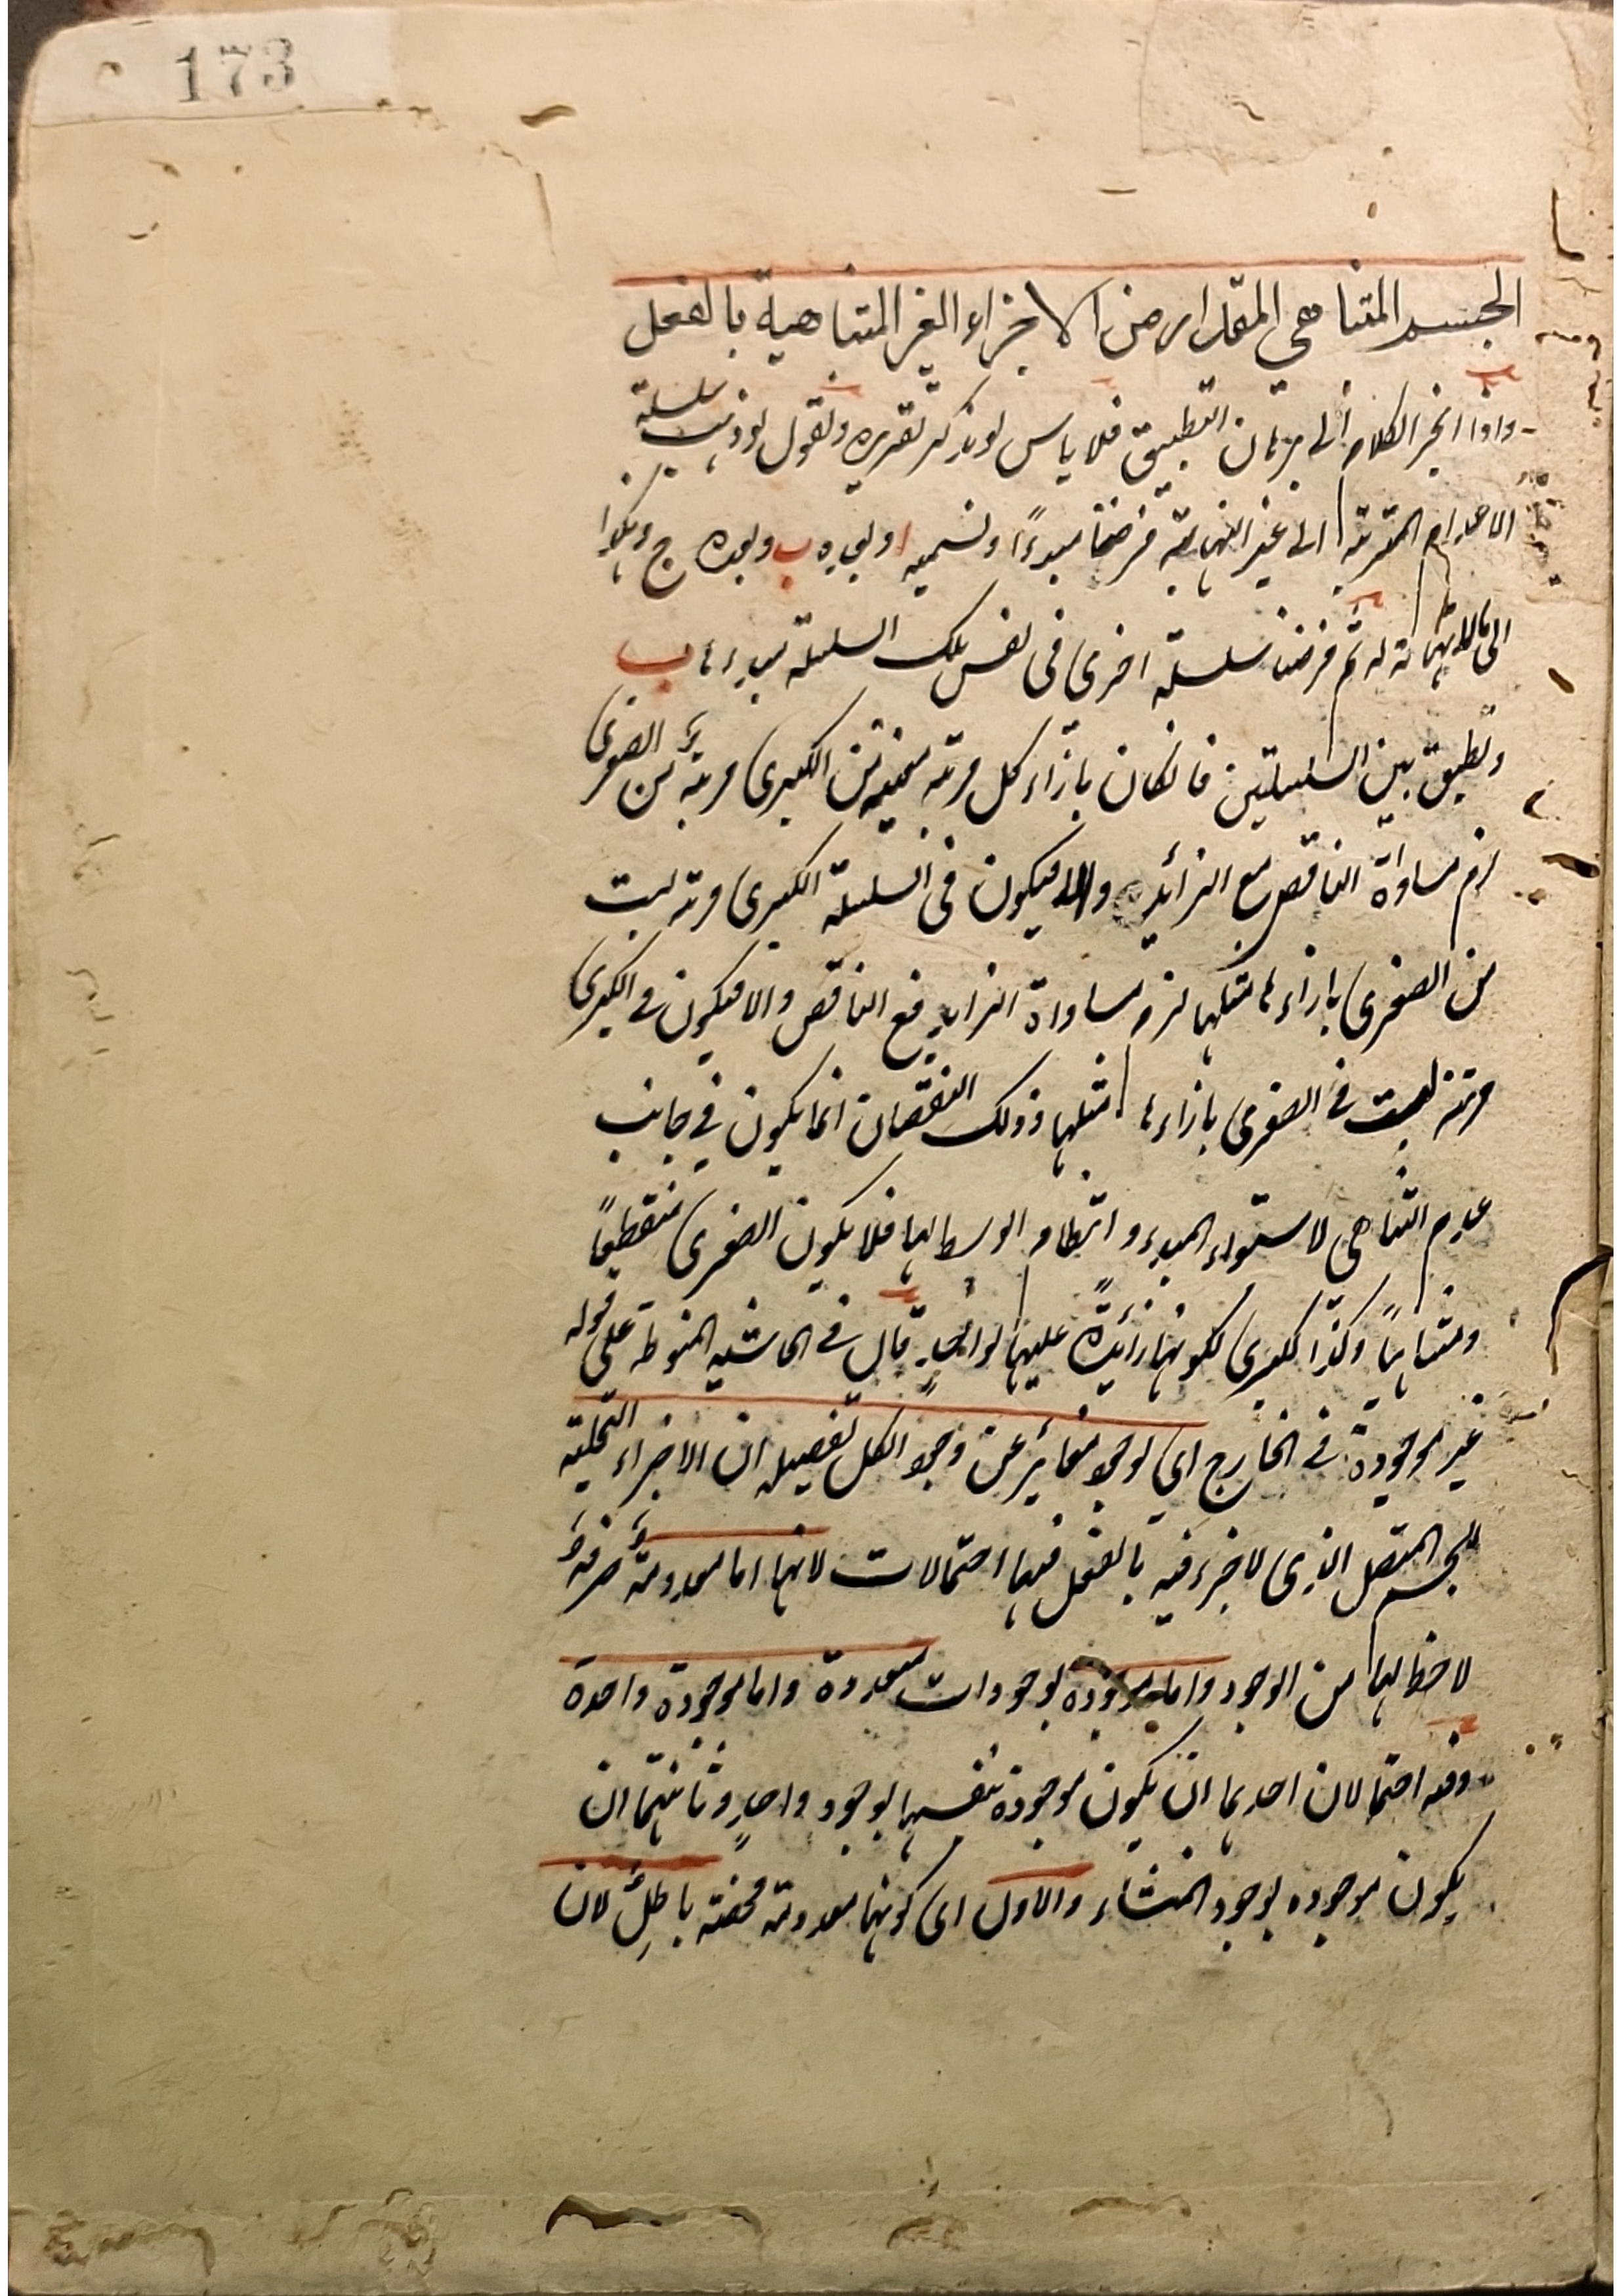 173
الجسم المتناهي المقدار من الاجزاء الغير المتناهية بالفعل
واذا انجر الكلام الى برهان التطبيق فلا باس لو نذكر تقريره ونقول لو ذهبت سلسلة
الاعدام المترتبة الى غير النهاية فرضنا مبدءًا ونسميه ا وبعده ب وبعده ج وهكذا
الى ما لا نهاية له ثم فرضنا سلسلة اخرى فى نفس تلك السلسلة مبدءها ب
ونطبق بين السلسلتين فانكان بازاء كل مرتبة معينة من الكبرى مرتبة من الصغرى
لزم مساواة الناقص مع الزائد والا فيكون فى السلسلة الكبرى مرتبة ليست
من الصغرى بازاءها مثلها لزم مساواة الزايد مع الناقص والا فيكون فى الكبرى
مرتبة ليست فى الصغرى بازاءها مثلها وذلك النقصان انما يكون فى جانب
عدم التناهى لاستواء المبدء وانتظام الوسط لها فلا يكون الصغرى منقطعًا
ومتناهيًا وكذا الكبرى لكونها زائدةً عليها بواحدٍ قال فى الحاشيه المنوطة على قوله
غير موجودة فى الخارج اى بوجود مغائر عن وجود الكل تفصيله ان الاجزاء التحليلية
للجسم المتصل الذى لا جزء فيه بالفعل فيها احتمالات لانها اما معدومةٌ صرفةٌ
لا حظ لها من الوجود واما موجودة بوجودات متعددة واما موجودة واحدة
وفيه احتمالان احدهما ان يكون موجودة بنفسها بوجود واحدٍ وثانيهما ان
يكون موجوده بوجود المنشاء والاول اى كونها معدومة محضة باطلٌ لان